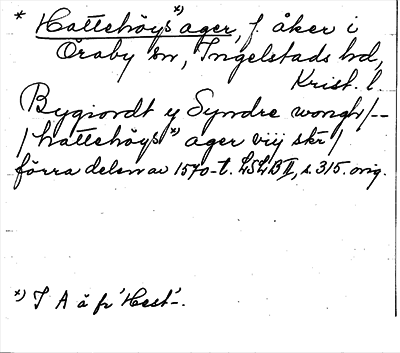 * Hattehöys*) ager, f. åker i
Öraby sn, Ingelstads hd,
Krist. l.
Bygiordt y Syndre wongh/--
/hattehöys*) ager viij skr/
förra delen av 1570-t. LSLB II, s. 315. orig.
*) I A å fr 'Hest-'.